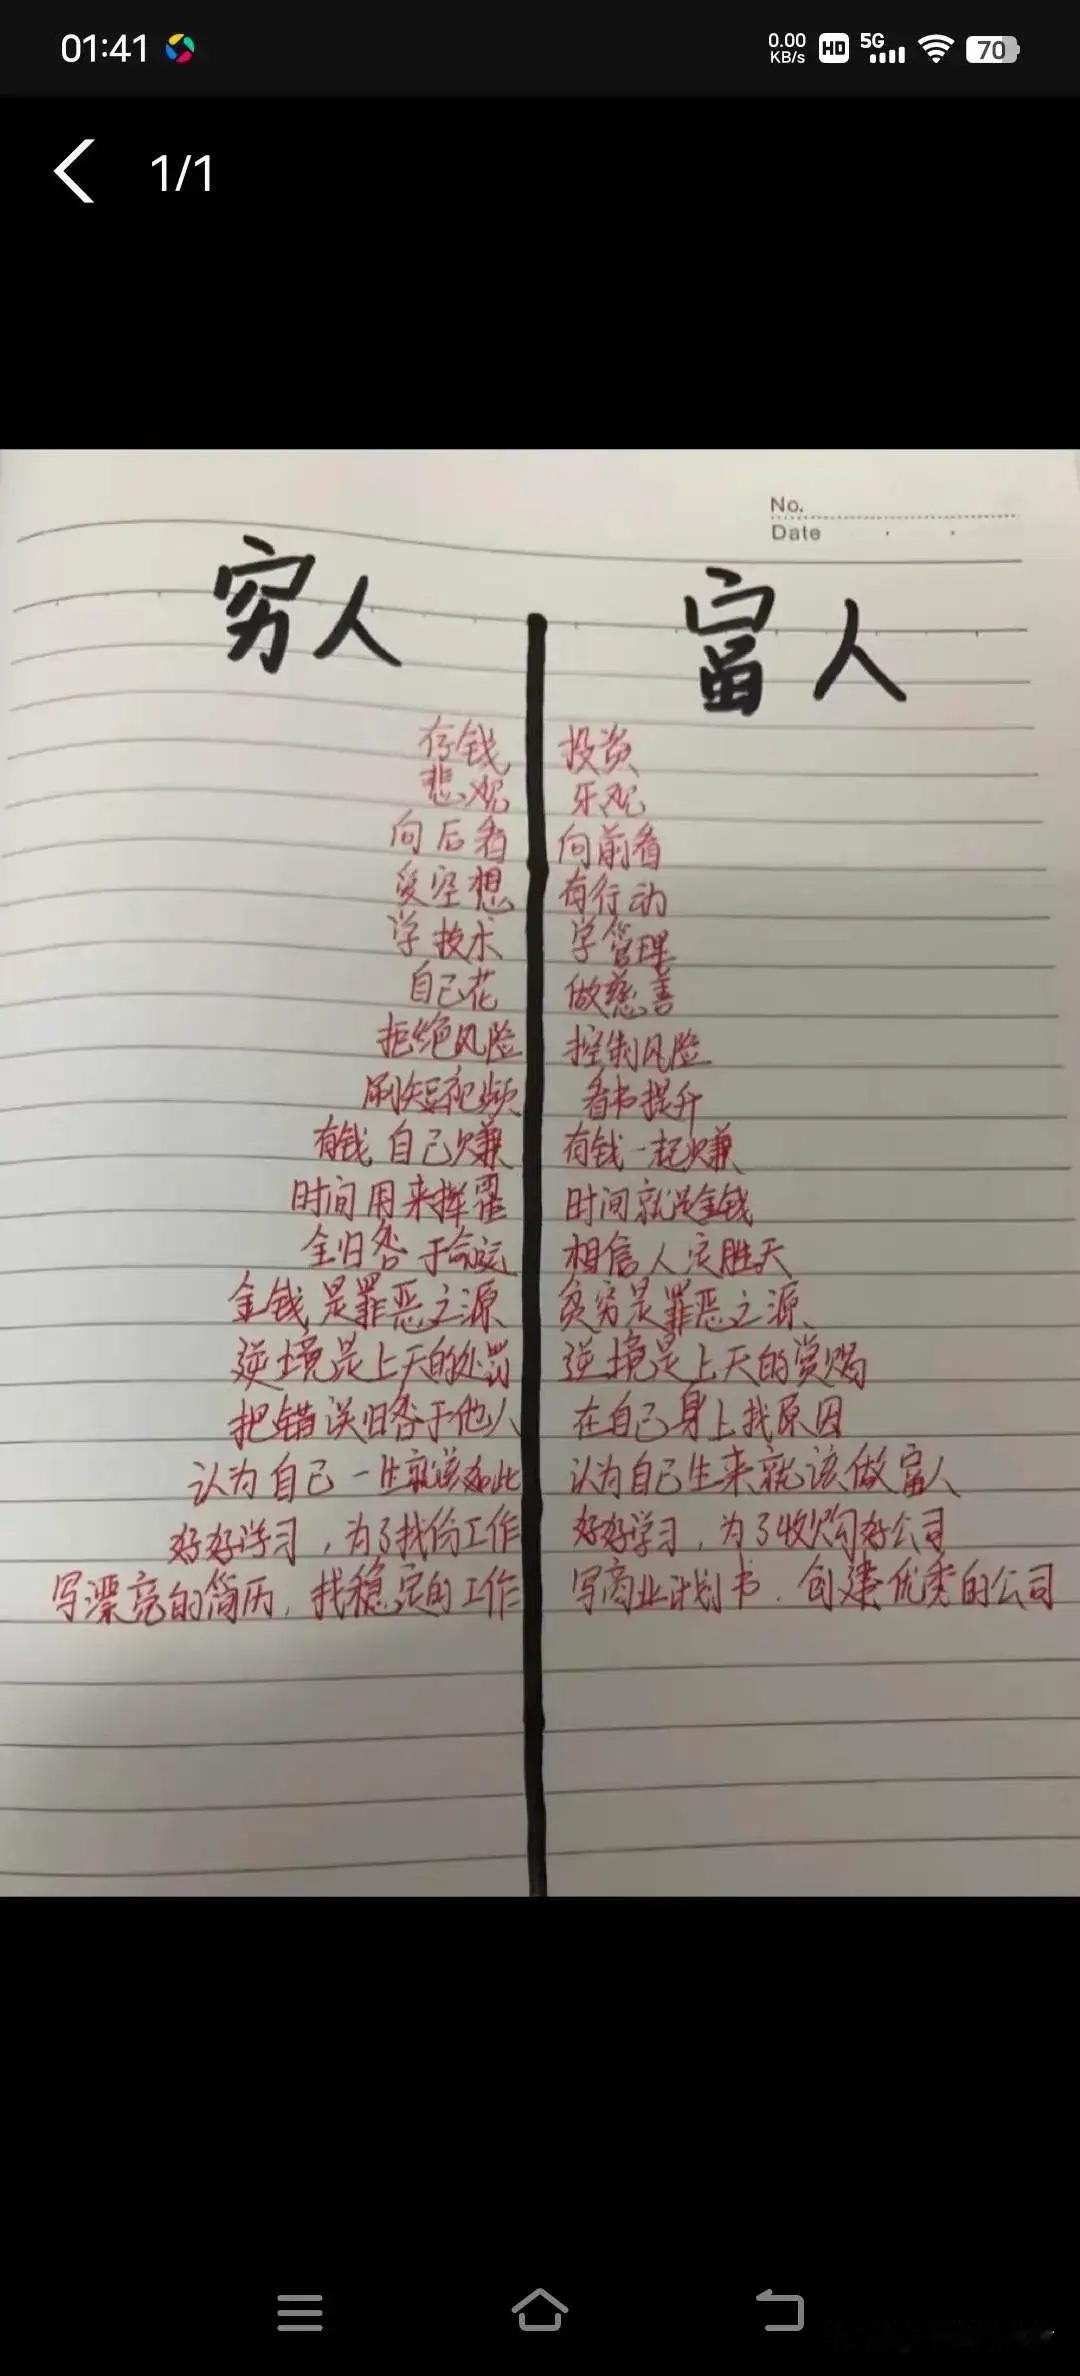 01:41
0.00 KB/s HD 5G 70
1/1
No.
Date
穷人 富人
存钱 投资
悲观 乐观
向后看 向前看
爱空想 有行动
学技术 学管理
自己花 做慈善
拒绝风险 控制风险
刷短视频 看书提升
有钱自己赚 有钱一起赚
时间用来挥霍 时间就是金钱
全归咎于命运 相信人定胜天
金钱是罪恶之源 贫穷是罪恶之源
逆境是上天的处罚 逆境是上天的赏赐
把错误归咎于他人 在自己身上找原因
认为自己一生就该如此 认为自己生来就该做富人
好好学习,为了找份工作 好好学习,为了收购好公司
写漂亮的简历,找稳定的工作 写商业计划书.创建优秀的公司